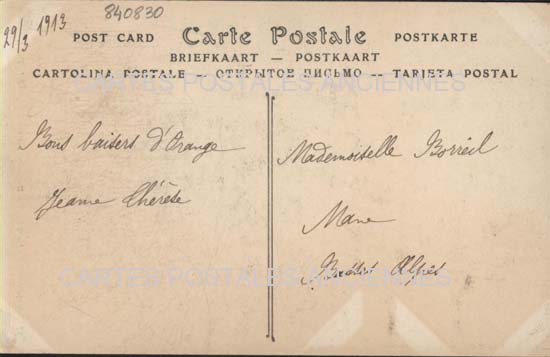 29/3 1913
840830
POST CARD Carte Postale POSTKARTE
BRIEFKAART — POSTKAART
CARTOLINA POSTALE -- ОТКРЫТОЕ ПИСЬМО -- TARJETA POSTAL
CARTES POSTALES ANCIENNES
Bons baisers d'Orange
Jeanne Thérèse
Mademoiselle Borréil
Mane
Basses Alpes
CARTES POSTALES ANCIENNES